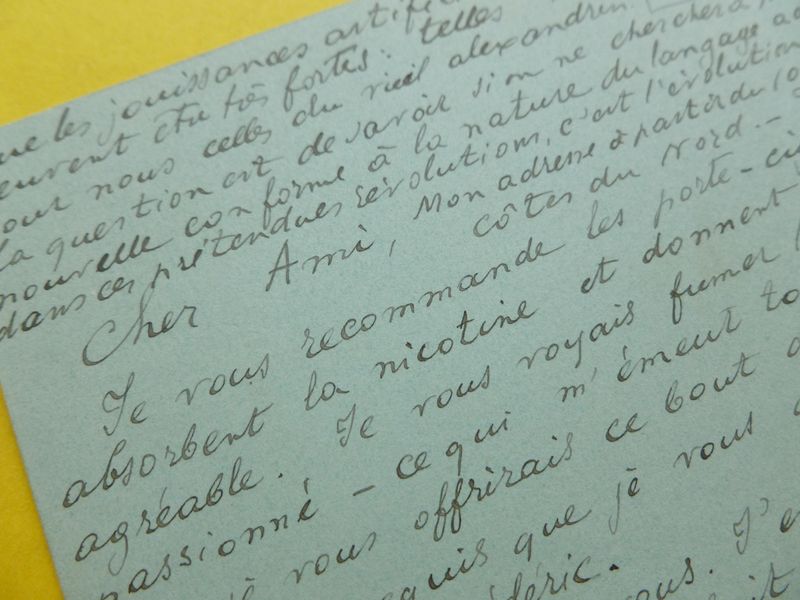 que les jouissances artifi
peuvent être très fortes : telles
pour nous celles du vieil alexandrin
la question est de savoir si on ne cherchera
nouvelle conforme à la nature du langage
dans ces prétendues révolutions, c'est l'évolution
Mon adresse à partir du 10
Côtes du Nord. -
Cher Ami,
Je vous recommande les porte-ci
absorbent la nicotine et donnent
agréable. Je vous voyais fumer
passionné - ce qui m'émeut to
je vous offrirais ce bout
cquis que je vous
édéric.
ous. J'e